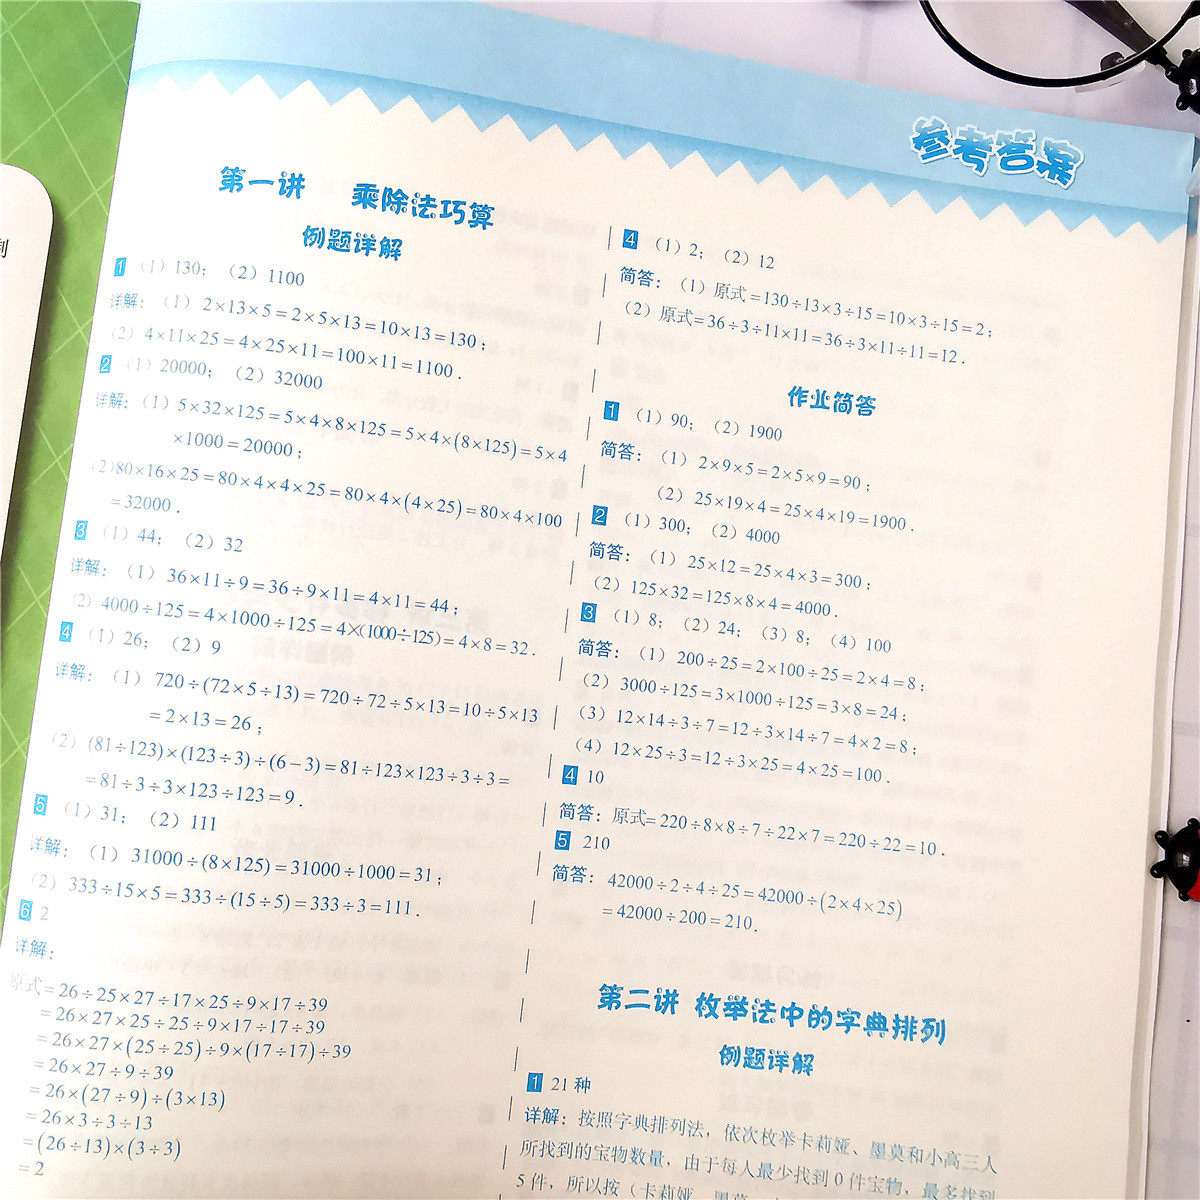 参考答案
第一讲 乘除法巧算
例题详解
1 （1）130；（2）1100
详解：（1）2×13×5=2×5×13=10×13=130；
（2）4×11×25=4×25×11=100×11=1100．
2 （1）20000；（2）32000
详解：（1）5×32×125=5×4×8×125=5×4×(8×125)=5×4
×1000=20000；
（2）80×16×25=80×4×4×25=80×4×(4×25)=80×4×100
=32000．
3 （1）44；（2）32
详解：（1）36×11÷9=36÷9×11=4×11=44；
（2）4000÷125=4×1000÷125=4×(1000÷125)=4×8=32．
4 （1）26；（2）9
详解：（1）720÷(72×5÷13)=720÷72÷5×13=10÷5×13
=2×13=26；
（2）(81÷123)×(123÷3)÷(6−3)=81÷123×123÷3÷3=
=81÷3÷3×123÷123=9．
5 （1）31；（2）111
详解：（1）31000÷(8×125)=31000÷1000=31；
（2）333÷15×5=333÷(15÷5)=333÷3=111．
6 2
详解：
原式=26÷25×27÷17×25÷9×17÷39
=26×27×25÷25÷9×17÷17÷39
=26×27×(25÷25)÷9×(17÷17)÷39
=26×27÷9÷39
=26×(27÷9)÷(3×13)
=26×3÷3÷13
=(26÷13)×(3÷3)
=2
4 （1）2；（2）12
简答：（1）原式=130÷13×3÷15=10×3÷15=2；
（2）原式=36÷3÷11×11=36÷3×11÷11=12．
作业简答
1 （1）90；（2）1900
简答：（1）2×9×5=2×5×9=90；
（2）25×19×4=25×4×19=1900．
2 （1）300；（2）4000
简答：（1）25×12=25×4×3=300；
（2）125×32=125×8×4=4000．
3 （1）8；（2）24；（3）8；（4）100
简答：（1）200÷25=2×100÷25=2×4=8；
（2）3000÷125=3×1000÷125=3×8=24；
（3）12×14÷3÷7=12÷3×14÷7=4×2=8；
（4）12×25÷3=12÷3×25=4×25=100．
4 10
简答：原式=220÷8×8÷7÷22×7=220÷22=10．
5 210
简答：42000÷2÷4÷25=42000÷(2×4×25)
=42000÷200=210．
第二讲 枚举法中的字典排列
例题详解
1 21种
详解：按照字典排列法，依次枚举卡莉娅、墨莫和小高三人
所找到的宝物数量，由于每人最少找到0件宝物，最多找到
5件，所以按（卡莉娅，墨莫